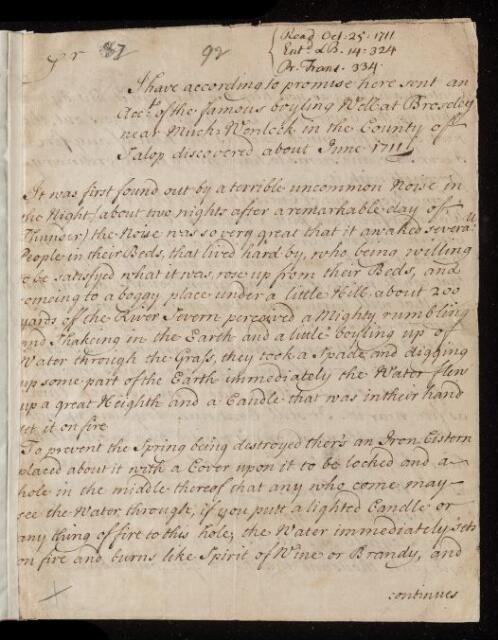 87
92
Read Oct. 25. 1711
Ent.d L.B. 14. 324
Pr. Trans. 334.
I have according to promise here sent an
Acct. of the famous boyling Well at Broseley
near Much-Wenlock in the County of
Salop discovered about June 1711
It was first found out by a terrible uncommon Noise in
the Night (about two nights after a remarkable day of
Thunder) the Noise was so very great that it awaked severall
People in their Beds, that lived hard by, who being willing
to be satisfyd what it was, rose up from their Beds, and
comeing to a boggy place under a little Hill about 200
yards of the River Severn perceived a Mighty rumbling
and Shakeing in the Earth and a little boyling up of
Water through the Grass, they took a Spade and digging
up some part of the Earth immediately the Water flew
up a great Heighth and a Candle that was in their hand
set it on fire
To prevent the Spring being destroyed ther's an Iron Cistern
placed about it with a Cover upon it to be locked and a
hole in the middle thereof that any who come may
see the Water through, if you put a lighted Candle or
any thing of fire to this hole, the Water immediately sets
on fire and burns like Spirit of Wine or Brandy, and
continues